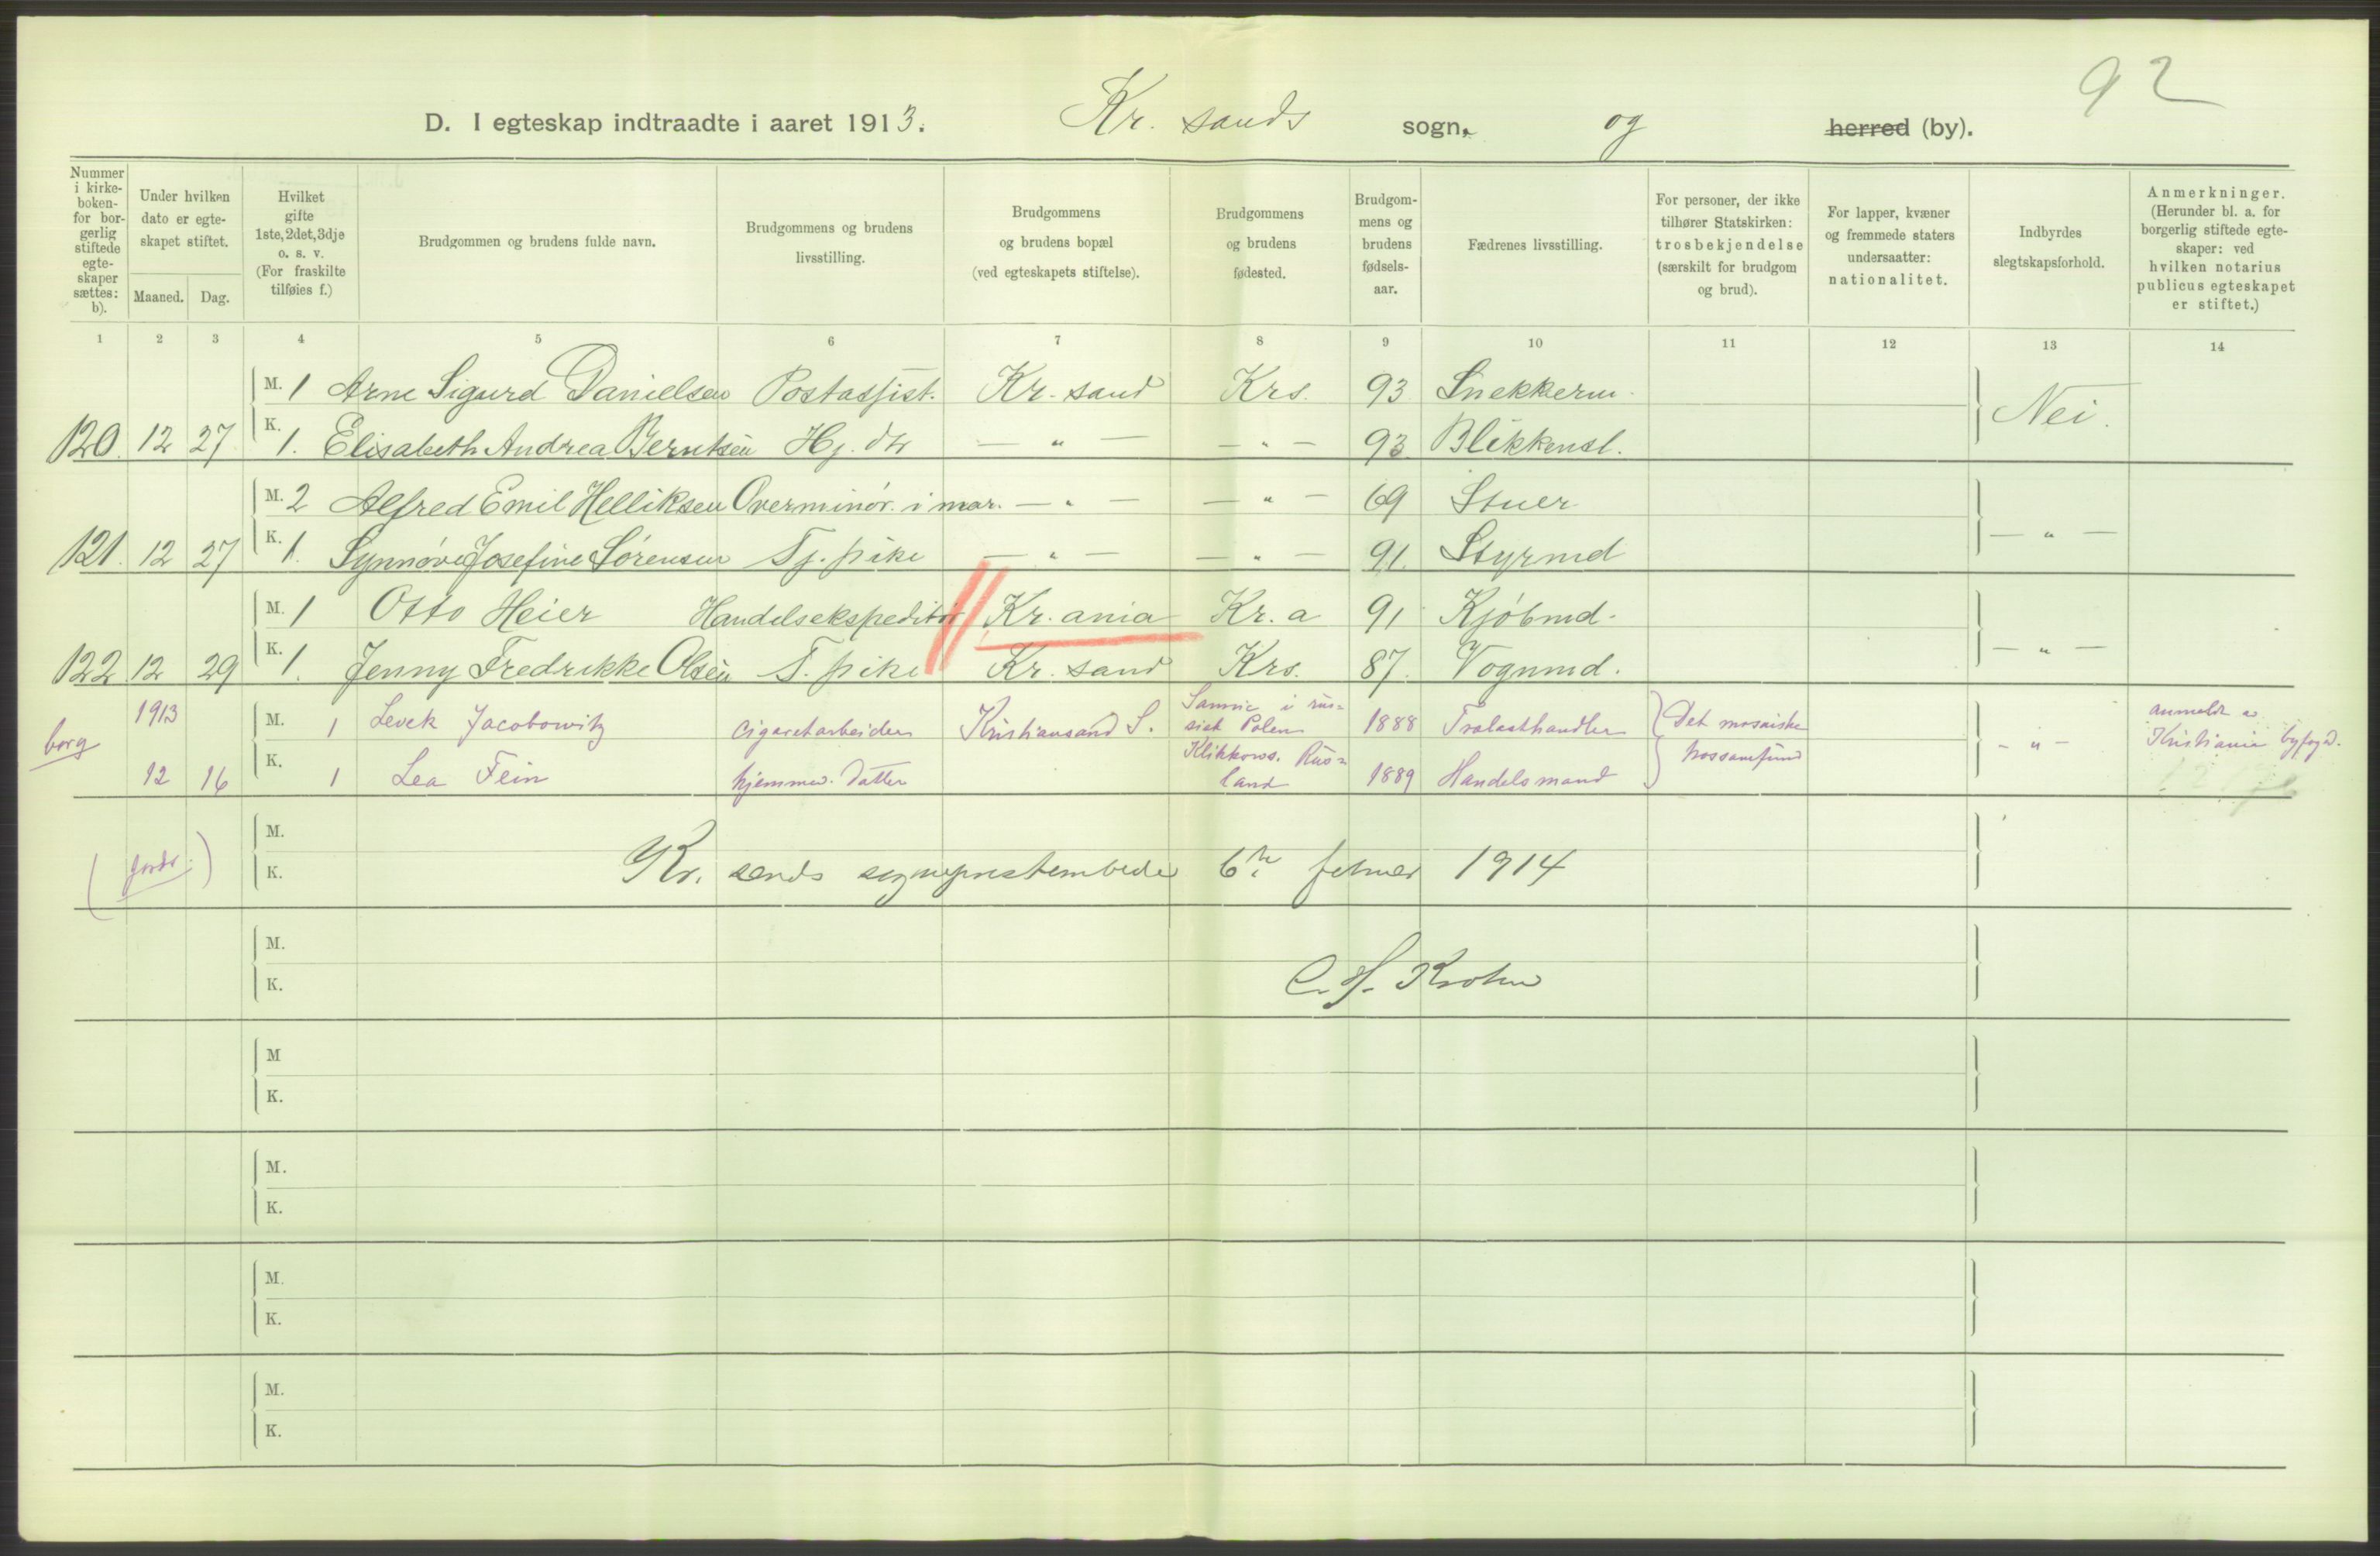 92
D. I egteskap indtraadte i aaret 1913. Kr. sands sogn. og herred (by).
Nummer i kirke-boken- for bor-gerlig stiftede egte-skaper sættes: b).
Under hvilken dato er egte-skapet stiftet.
Maaned. Dag.
Hvilket gifte 1ste, 2det, 3dje o. s. v. (For fraskilte tilføies f.)
Brudgommen og brudens fulde navn.
Brudgommens og brudens livsstilling.
Brudgommens og brudens bopæl (ved egteskapets stiftelse).
Brudgommens og brudens fødested.
Brudgom-mens og brudens fødsels-aar.
Fædrenes livsstilling.
For personer, der ikke tilhører Statskirken: trosbekjendelse (særskilt for brudgom og brud).
For lapper, kvæner og fremmede staters undersaatter: nationalitet.
Indbyrdes slegtskapsforhold.
Anmerkninger. (Herunder bl. a. for borgerlig stiftede egte-skaper: ved hvilken notarius publicus egteskapet er stiftet.)
1 2 3 4 5 6 7 8 9 10 11 12 13 14
M. 1 Arne Sigurd Danielsen Postassist. Kr. sand Krs. 93 Snekkerm. Nei.
120. 12 27 K. 1. Elisabeth Andrea Berntsen Hj. dtr — " — — " — 93 Blikkensl.
M. 2 Alfred Emil Helliksen Overminør. i mar. — " — — " — 69 Stuer — " —
121. 12 27 K. 1. Synnøve Josefine Sørensen Tj. pike — " — — " — 91. Styrmd
M. 1 Otto Heier Handelsekspeditør Kr. ania Kr. a 91 Kjøbmd. — " —
122 12 29 K. 1. Jenny Fredrikke Olsen T. pike Kr. sand Krs. 87. Vognmd.
borg 1913 M. 1 Levek Jacobowitz cigaretarbeider Kristiansand S. i rus-sisk Polen 1888 Trælasthandler Det mosaiske trossamfund — " — anmeldt Kristiania byfogd.
12 16 K. 1 Lea Fein hjemmev. datter Rus-land 1889 Handelsmand
M.
K. Kr. sands sogneprestembede 6te februar 1914
M.
K. C. Krohn
M
K.
M.
K.
M.
K.
M.
K.